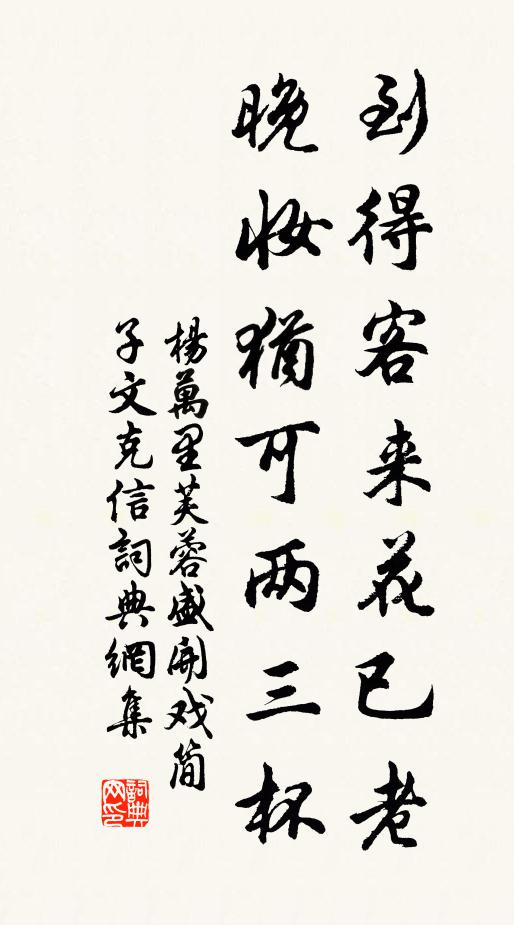 到得客来花已老
晚妆犹可两三杯
楊萬里芙蓉盛開戏简
子文克信詞典網集
詞典
网印